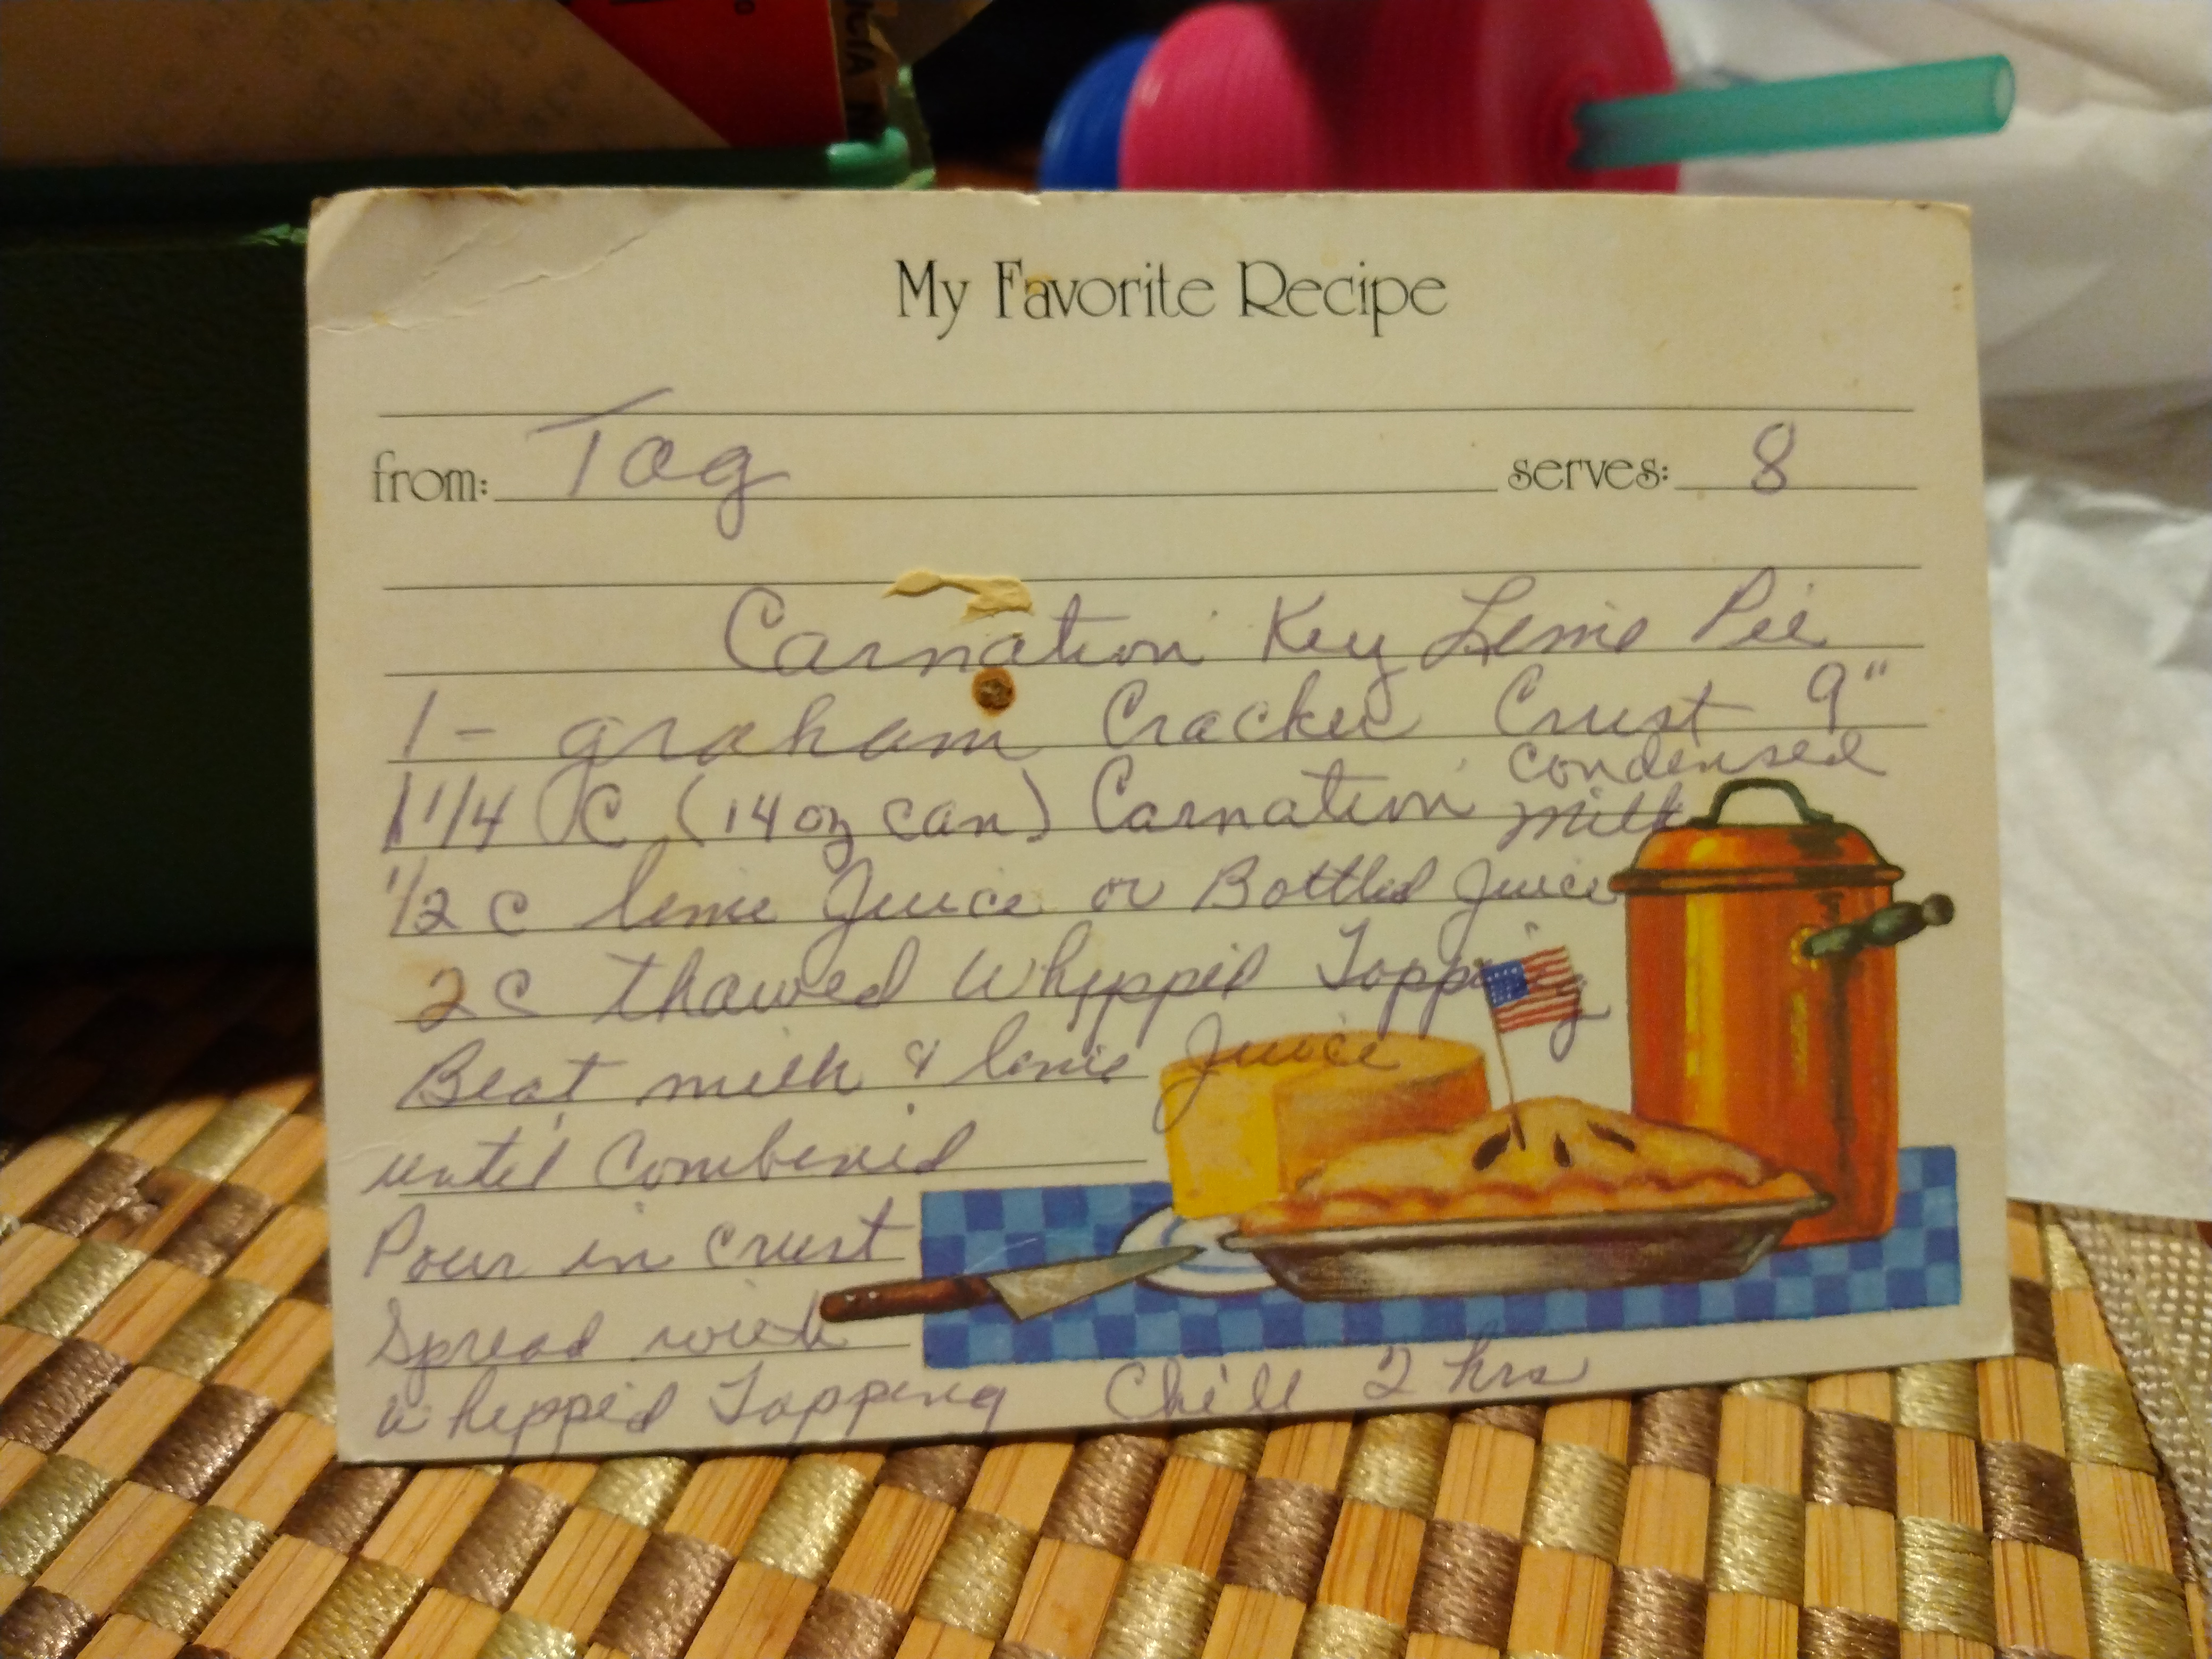 My Favorite Recipe
from: Tag serves: 8
Carnation Key Lime Pie
1 - graham Cracker Crust 9"
1 1/4 C (14 oz can) Carnation condensed milk
1/2 C lime Juice or Bottled Juice
2 C Thawed Whipped Topping
Beat milk & lime Juice
until Combined
Pour in crust
Spread with
whipped Topping Chill 2 hrs